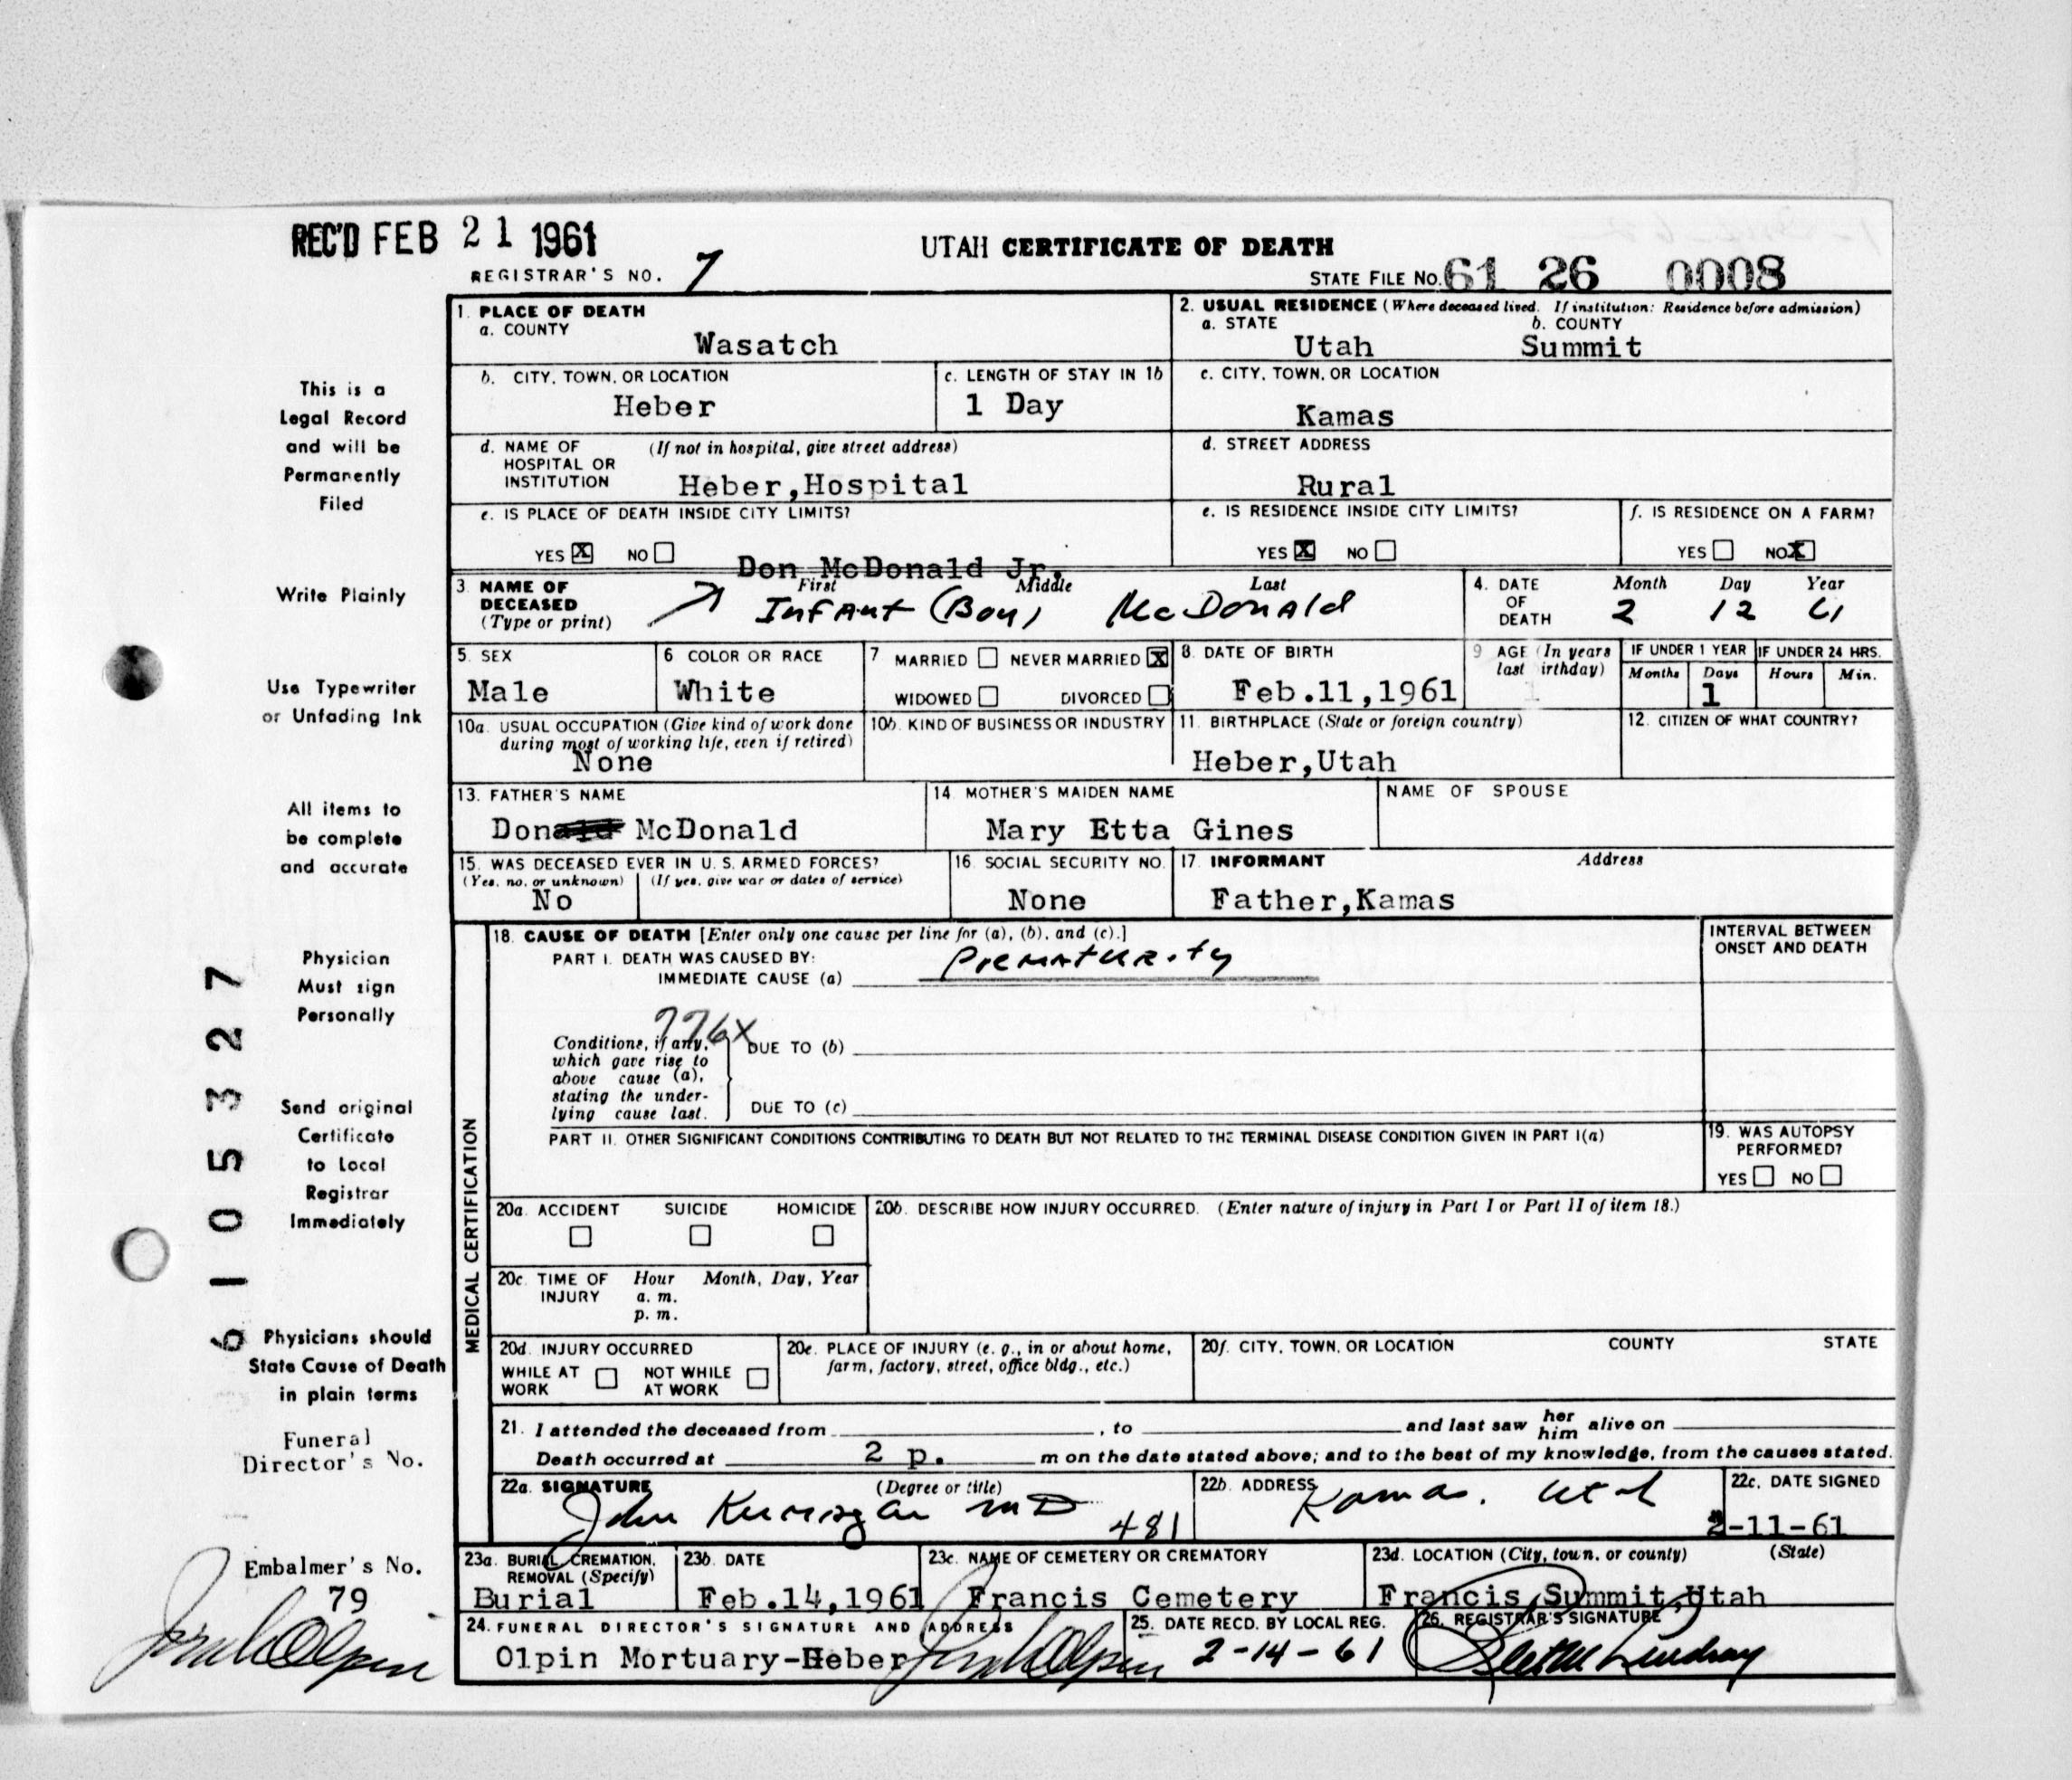 REC'D FEB 21 1961
UTAH CERTIFICATE OF DEATH
REGISTRAR'S NO. 7
STATE FILE NO. 61 26 0008
1. PLACE OF DEATH
a. COUNTY
Wasatch
2. USUAL RESIDENCE (Where deceased lived. If institution: Residence before admission)
a. STATE b. COUNTY
Utah Summit
b. CITY, TOWN, OR LOCATION
Heber
c. LENGTH OF STAY IN 1b
1 Day
c. CITY, TOWN, OR LOCATION
Kamas
d. NAME OF (If not in hospital, give street address)
HOSPITAL OR
INSTITUTION Heber,Hospital
d. STREET ADDRESS
Rural
e. IS PLACE OF DEATH INSIDE CITY LIMITS?
YES X NO
e. IS RESIDENCE INSIDE CITY LIMITS?
YES X NO
f. IS RESIDENCE ON A FARM?
YES NO X
Don McDonald Jr.
3. NAME OF First Middle Last
DECEASED
(Type or print)
Infant (Boy) McDonald
4. DATE Month Day Year
OF
DEATH 2 12 61
5. SEX
Male
6 COLOR OR RACE
White
7 MARRIED NEVER MARRIED X
WIDOWED DIVORCED
8. DATE OF BIRTH
Feb.11,1961
9 AGE (In years
last birthday)
IF UNDER 1 YEAR
Months Days
1
IF UNDER 24 HRS.
Hours Min.
10a. USUAL OCCUPATION (Give kind of work done
during most of working life, even if retired)
None
10b. KIND OF BUSINESS OR INDUSTRY
11. BIRTHPLACE (State or foreign country)
Heber,Utah
12. CITIZEN OF WHAT COUNTRY?
13. FATHER'S NAME
Don McDonald
14. MOTHER'S MAIDEN NAME
Mary Etta Gines
NAME OF SPOUSE
15. WAS DECEASED EVER IN U. S. ARMED FORCES?
(Yes, no, or unknown) (If yes, give war or dates of service)
No
16. SOCIAL SECURITY NO.
None
17. INFORMANT Address
Father,Kamas
MEDICAL CERTIFICATION
18. CAUSE OF DEATH [Enter only one cause per line for (a), (b), and (c).]
PART I. DEATH WAS CAUSED BY:
IMMEDIATE CAUSE (a) Prematurity
INTERVAL BETWEEN
ONSET AND DEATH
776X
Conditions, if any, DUE TO (b)
which gave rise to
above cause (a),
stating the under-
lying cause last. DUE TO (c)
PART II. OTHER SIGNIFICANT CONDITIONS CONTRIBUTING TO DEATH BUT NOT RELATED TO THE TERMINAL DISEASE CONDITION GIVEN IN PART I(a)
19. WAS AUTOPSY
PERFORMED?
YES NO
20a. ACCIDENT SUICIDE HOMICIDE
20b. DESCRIBE HOW INJURY OCCURRED. (Enter nature of injury in Part I or Part II of item 18.)
20c. TIME OF Hour Month, Day, Year
INJURY a. m.
p. m.
20d. INJURY OCCURRED
WHILE AT NOT WHILE
WORK AT WORK
20e. PLACE OF INJURY (e. g., in or about home,
farm, factory, street, office bldg., etc.)
20f. CITY, TOWN, OR LOCATION COUNTY STATE
21. I attended the deceased from , to and last saw her him alive on
Death occurred at 2 p. m on the date stated above; and to the best of my knowledge, from the causes stated.
22a. SIGNATURE (Degree or title)
John MD 481
22b. ADDRESS
Kamas. Utah
22c. DATE SIGNED
2-11-61
23a. BURIAL, CREMATION,
REMOVAL (Specify)
Burial
23b. DATE
Feb.14,1961
23c. NAME OF CEMETERY OR CREMATORY
Francis Cemetery
23d. LOCATION (City, town, or county) (State)
Francis,Summit,Utah
24. FUNERAL DIRECTOR'S SIGNATURE AND ADDRESS
Olpin Mortuary-Heber Olpin
25. DATE RECD. BY LOCAL REG.
2-14-61
26. REGISTRAR'S SIGNATURE
Lindsay
This is a
Legal Record
and will be
Permanently
Filed
Write Plainly
Use Typewriter
or Unfading Ink
All items to
be complete
and accurate
Physician
Must sign
Personally
Send original
Certificate
to Local
Registrar
Immediately
Physicians should
State Cause of Death
in plain terms
Funeral
Director's No.
Embalmer's No.
79
Olpin
6105327